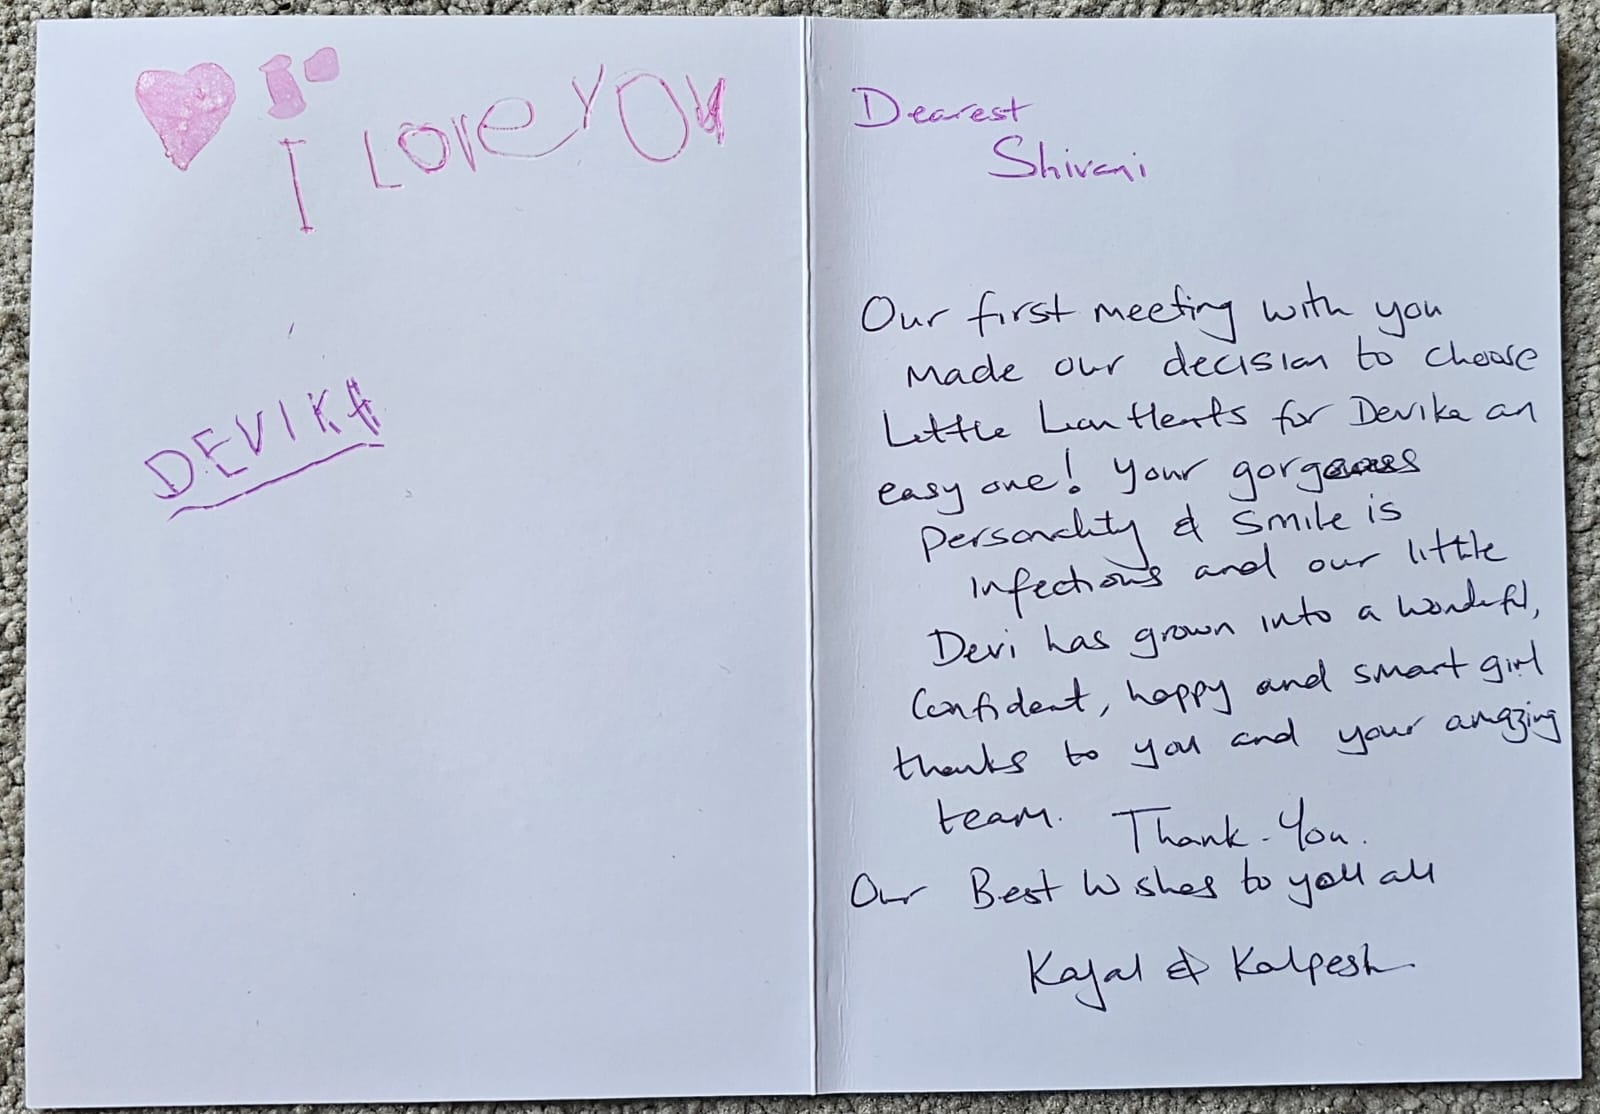 I LOVE YOU
DEVIKA
Dearest
Shivani
Our first meeting with you
made our decision to choose
Little Lion Hearts for Devika an
easy one! Your gorgeous
personality & smile is
infectious and our little
Devi has grown into a wonderful,
confident, happy and smart girl
thanks to you and your amazing
team. Thank-You.
Our Best Wishes to you all
Kajal & Kalpesh